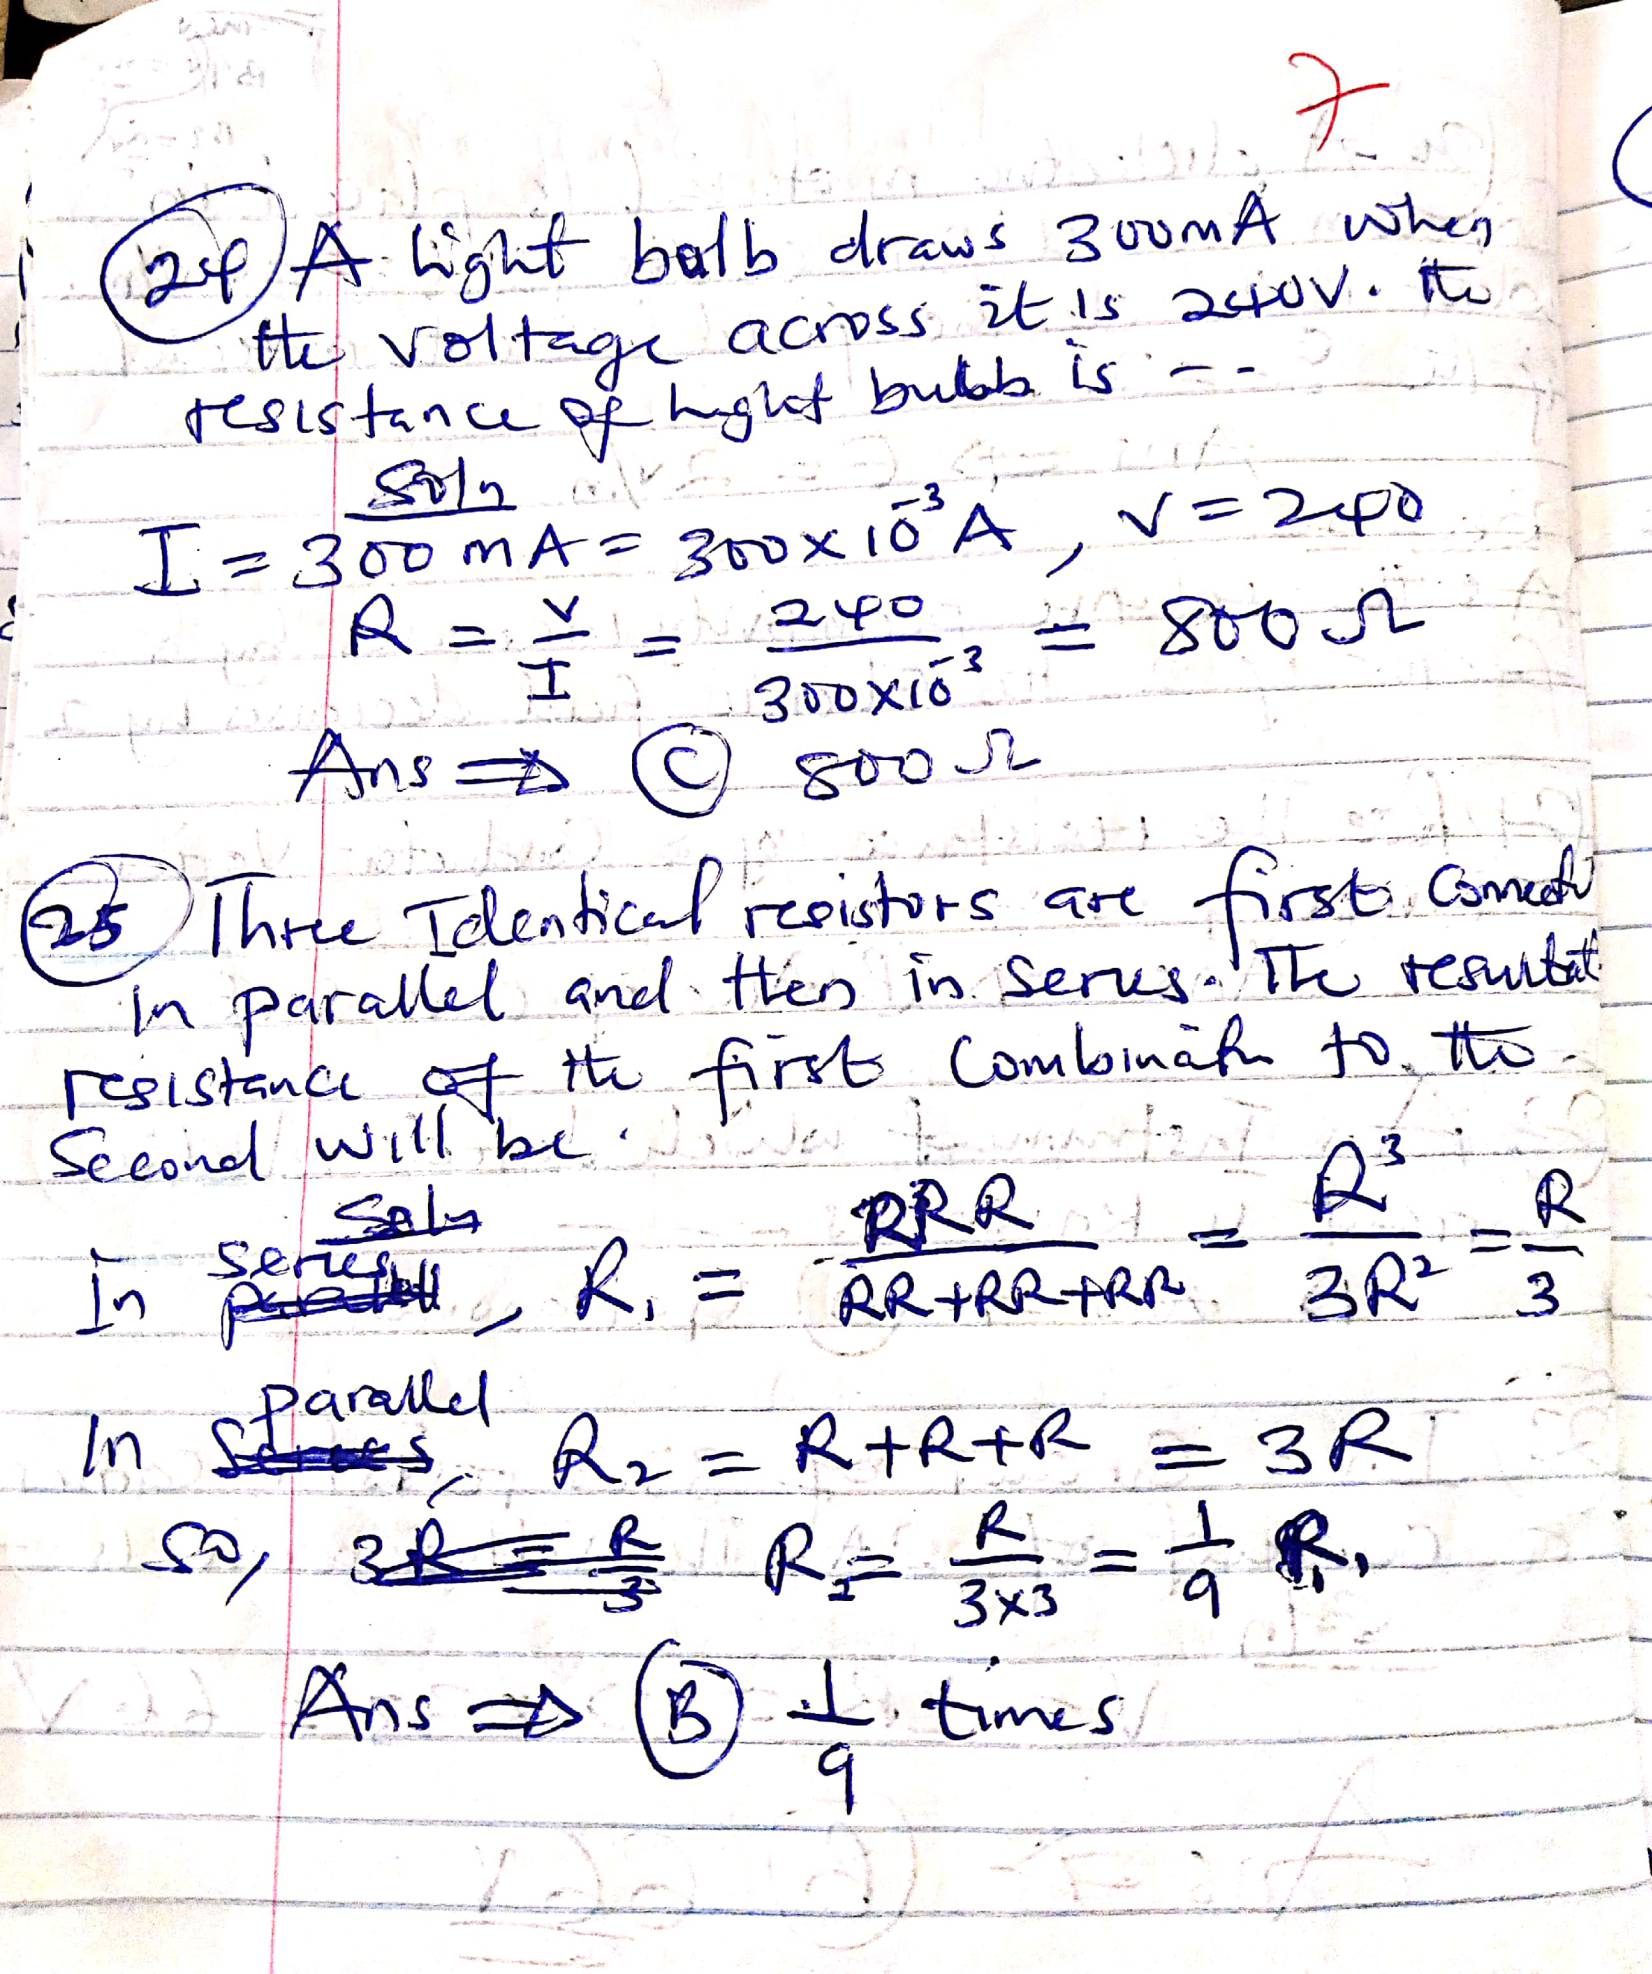 7
24 A light bulb draws 300mA when
the voltage across it is 240V. the
resistance of light bulb is --
Soln
I = 300 mA = 300x10⁻³A, V = 240
R = V/I = 240/300x10⁻³ = 800 Ω
Ans ⇒ C 800 Ω
25 Three Identical resistors are first
In parallel and then in series. The
resistance of the first Combination to the
Second will be.
Soln
In series, R₁ = RRR/RR+RR+RR = R³/3R² = R/3
In parallel, R₂ = R+R+R = 3R
So, 3R = R/3 R₂ = R/3x3 = 1/9 R₁
Ans ⇒ B 1/9 times